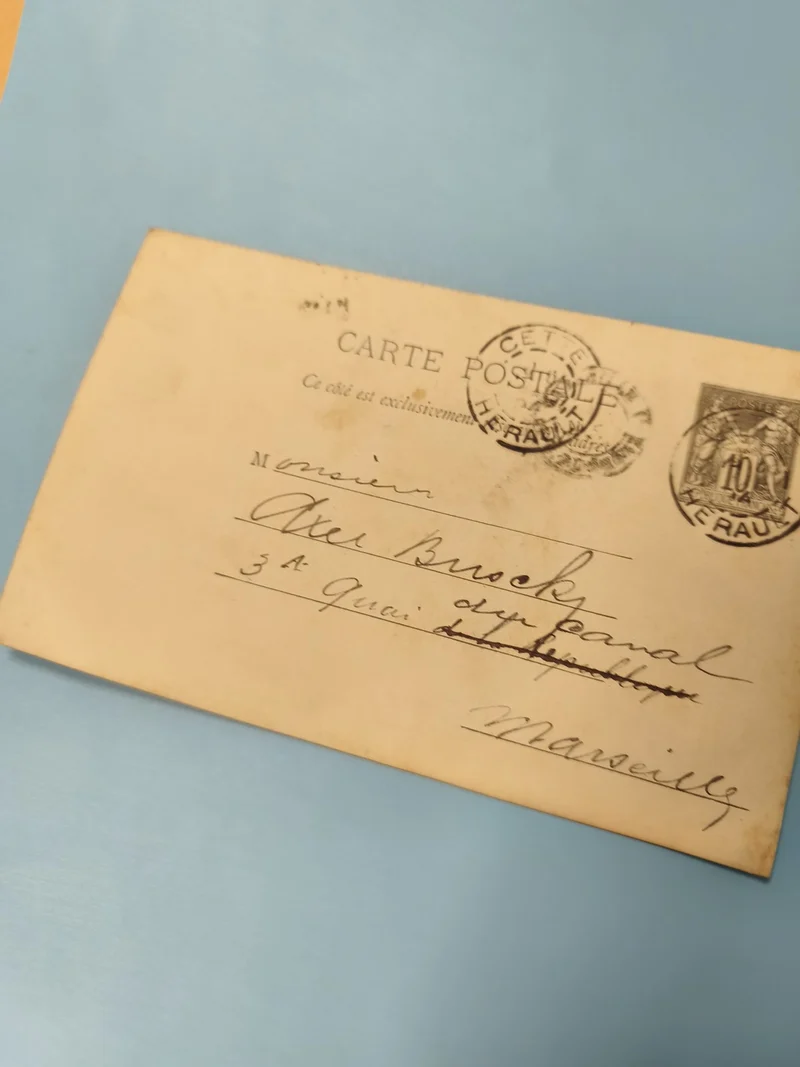 CARTE POSTALE
Ce côté est exclusivement
CETTE
HERAULT
POSTE
10
HERAULT
Monsieur
Axel Brocky
3 A. Quai du Canal
de la République
Marseille